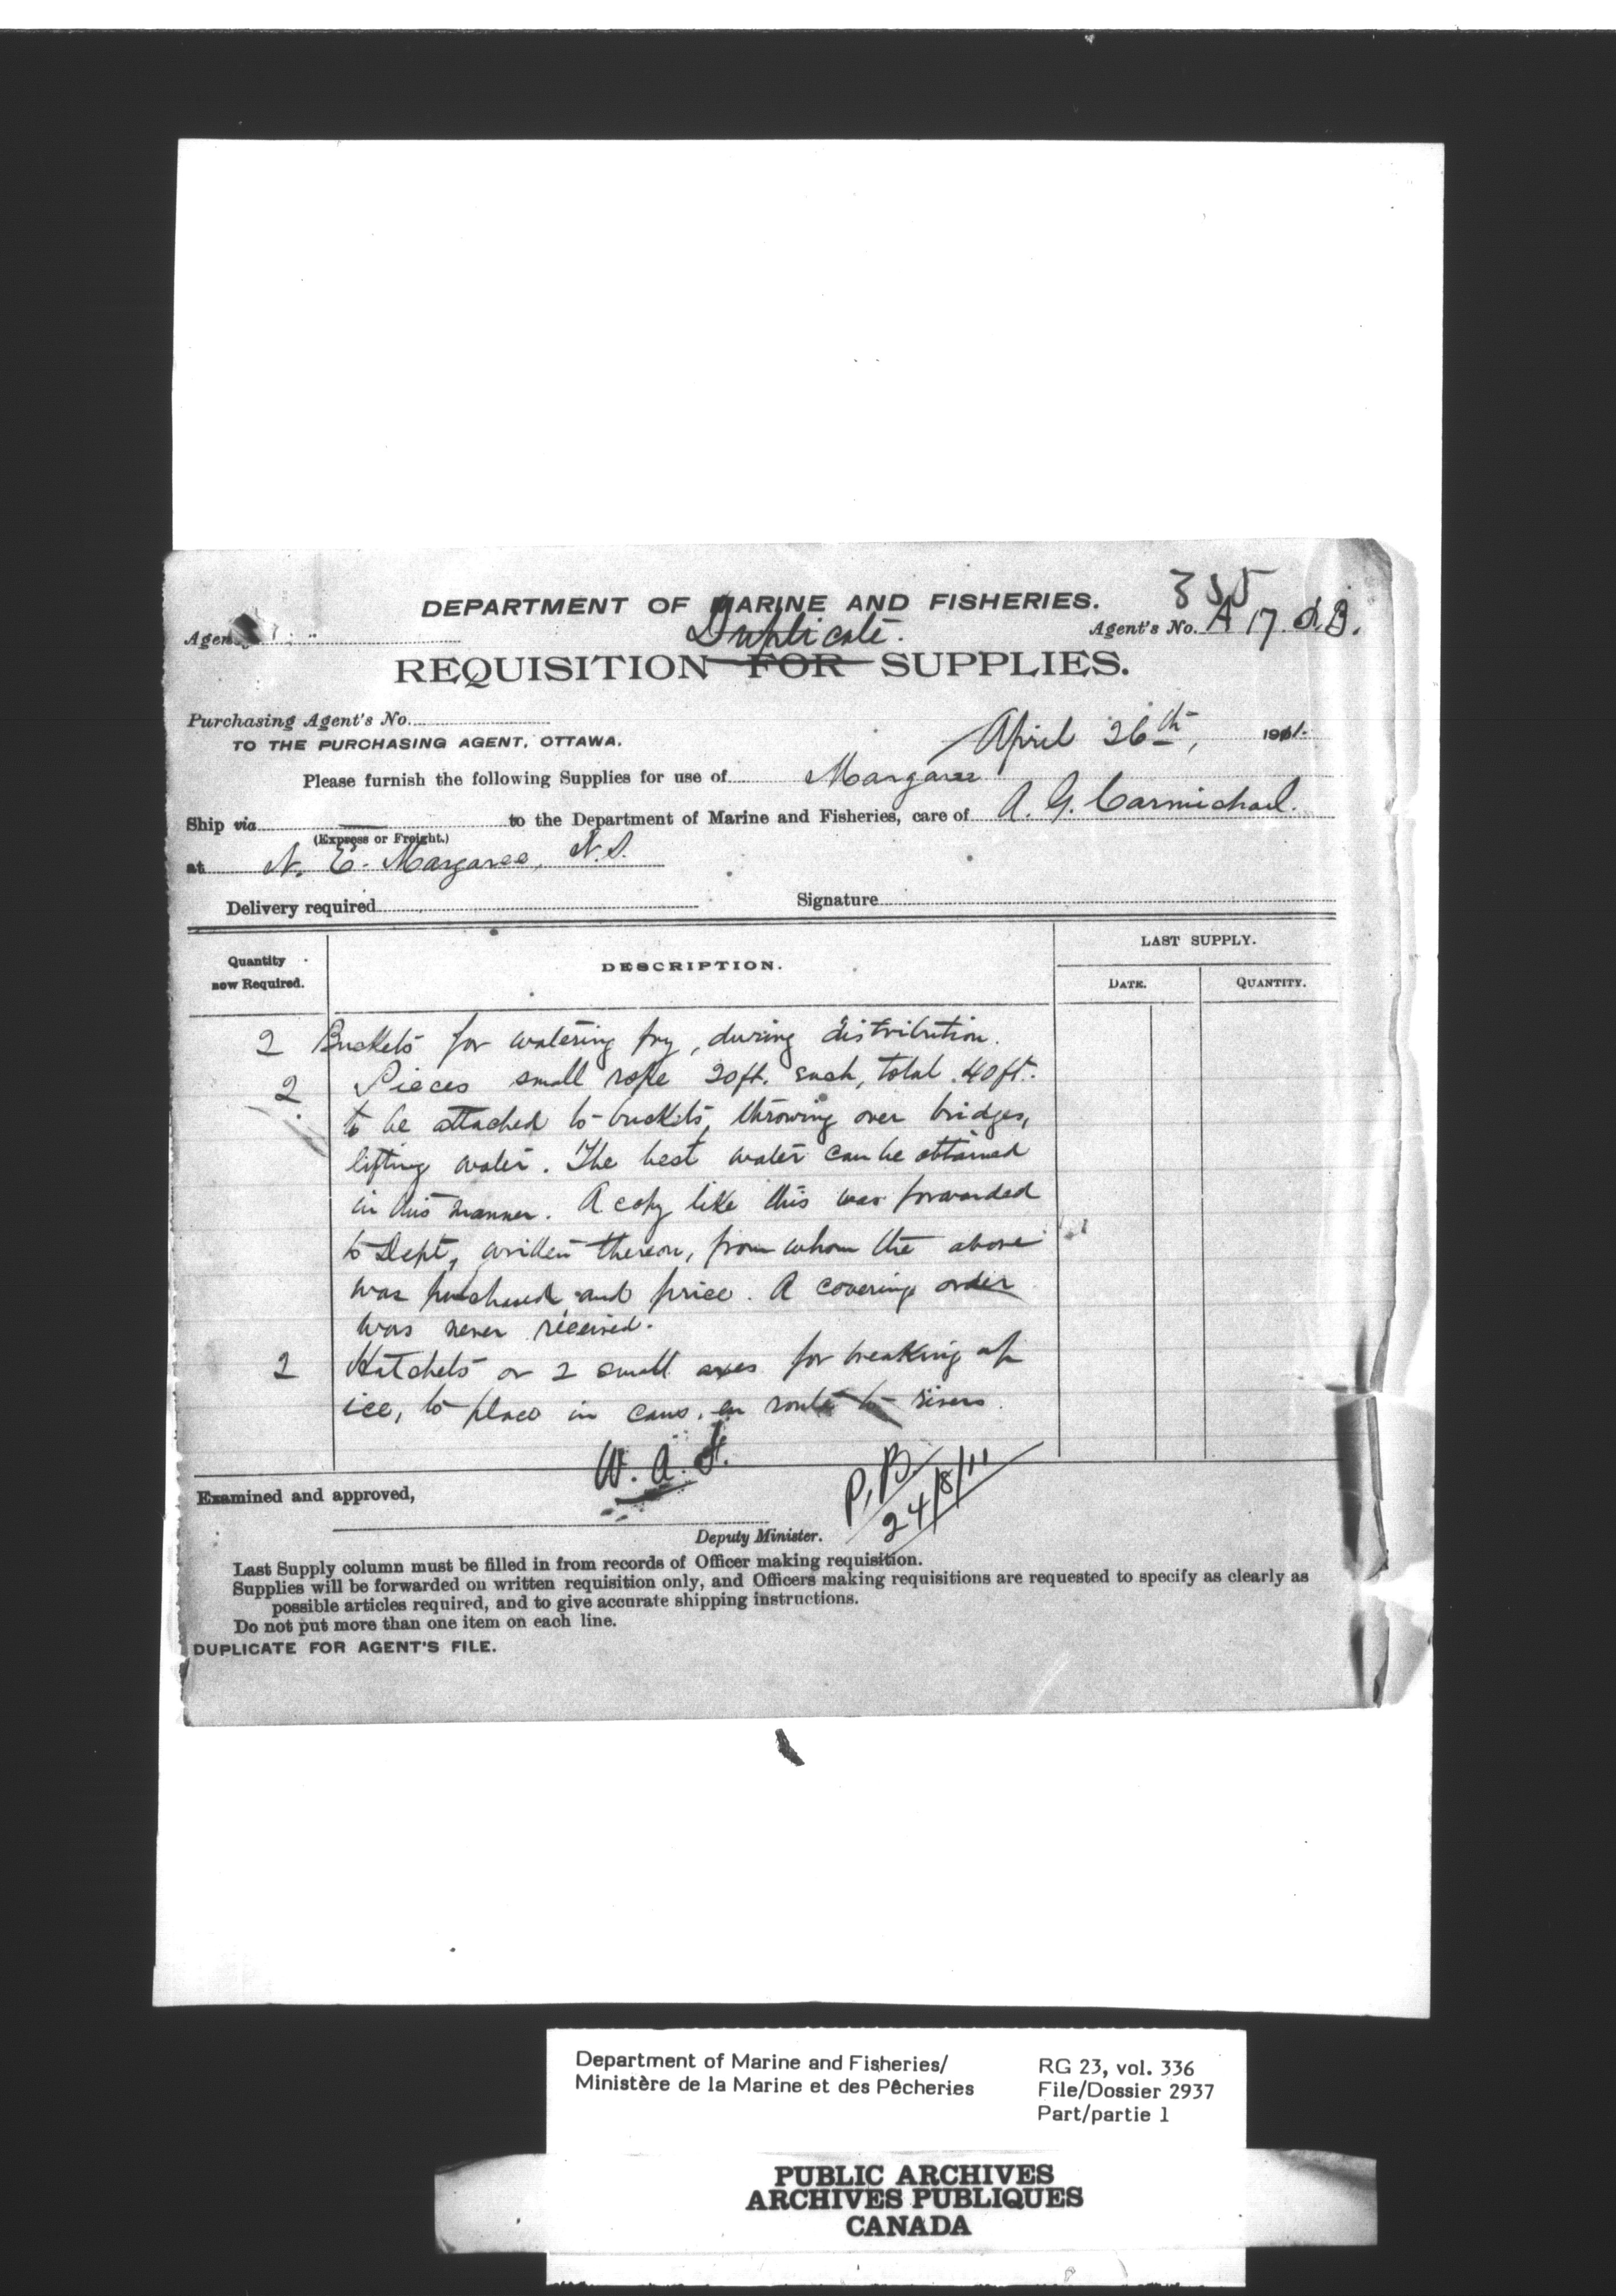 335
DEPARTMENT OF MARINE AND FISHERIES.
Agent's No. A 17. O.B.
Duplicate.
REQUISITION FOR SUPPLIES.
Purchasing Agent's No.
TO THE PURCHASING AGENT, OTTAWA.
April 26th, 1911.
Please furnish the following Supplies for use of Margaree
Ship via — to the Department of Marine and Fisheries, care of A. G. Carmichael.
(Express or Freight.)
at N. E. Margaree, N.S.
Delivery required Signature
Quantity now Required. DESCRIPTION. LAST SUPPLY.
DATE. QUANTITY.
2 Buckets for watering fry, during distribution.
2 Pieces small rope 20ft. each, total 40ft.
to be attached to buckets, throwing over bridges,
lifting water. The best water can be obtained
in this manner. A copy like this was forwarded
to Dept, written thereon, from whom the above
was purchased and price. A covering order
was never received.
2 Hatchets or 2 small axes for breaking up
ice, to place in cans, en route to rivers.
W. A. F.
P.B.
24/8/11
Examined and approved,
Deputy Minister.
Last Supply column must be filled in from records of Officer making requisition.
Supplies will be forwarded on written requisition only, and Officers making requisitions are requested to specify as clearly as
possible articles required, and to give accurate shipping instructions.
Do not put more than one item on each line.
DUPLICATE FOR AGENT'S FILE.
Department of Marine and Fisheries/
Ministère de la Marine et des Pêcheries
RG 23, vol. 336
File/Dossier 2937
Part/partie 1
PUBLIC ARCHIVES
ARCHIVES PUBLIQUES
CANADA